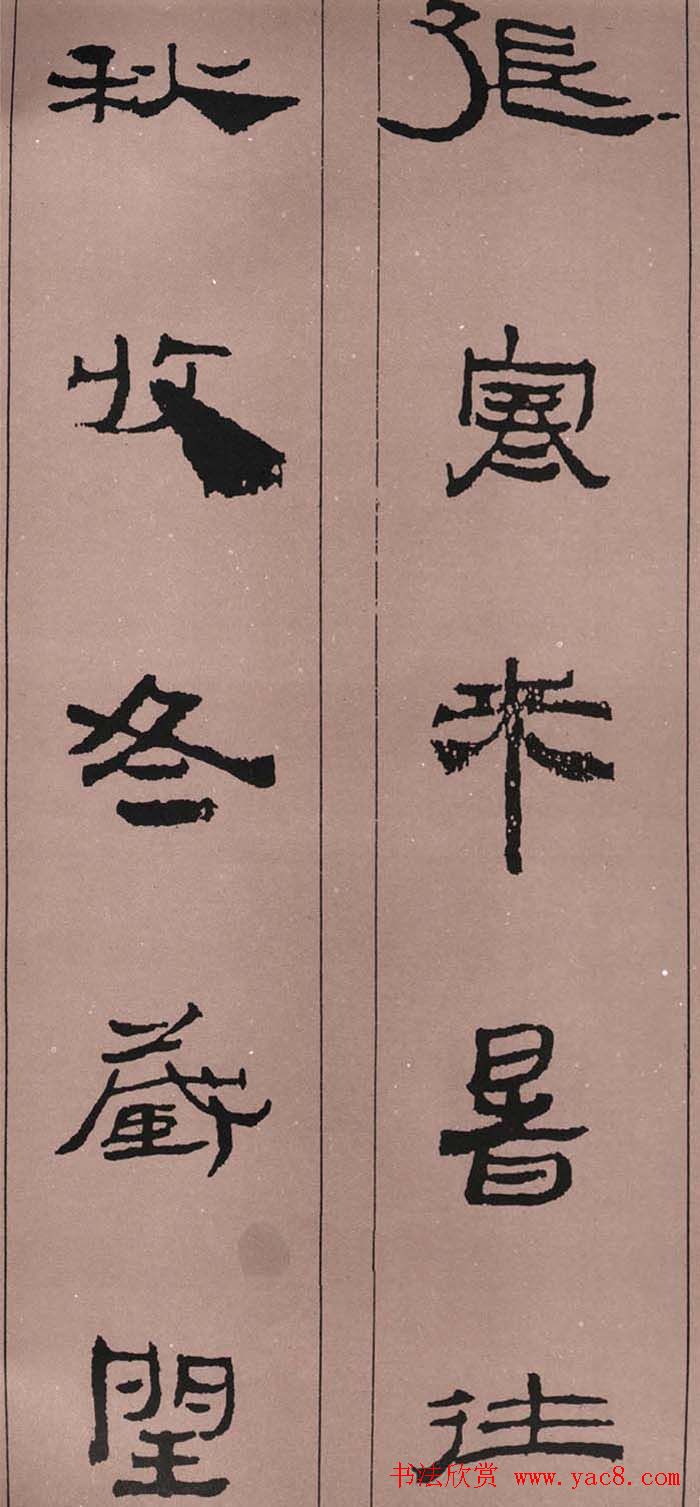 張寒来暑往
秋收冬藏閏
书法欣赏 www.yac8.com